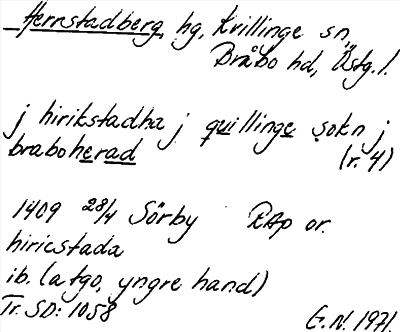 Hernstadberg, hg, Kvillinge sn,
Bråbo hd, Östg. l.
j hirikstadha j quillinge sokn j
braboherad (r. 4)
1409 28/4 Sörby RAp or.
hiricstada
ib. (a tgo, yngre hand)
Tr. SD: 1058 E.N. 1971.